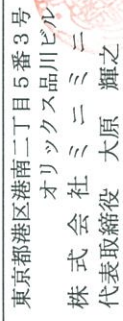 東京都港区港南二丁目5番3号
オリックス品川ビル
株式会社ミニミニ
代表取締役 大原 輝之